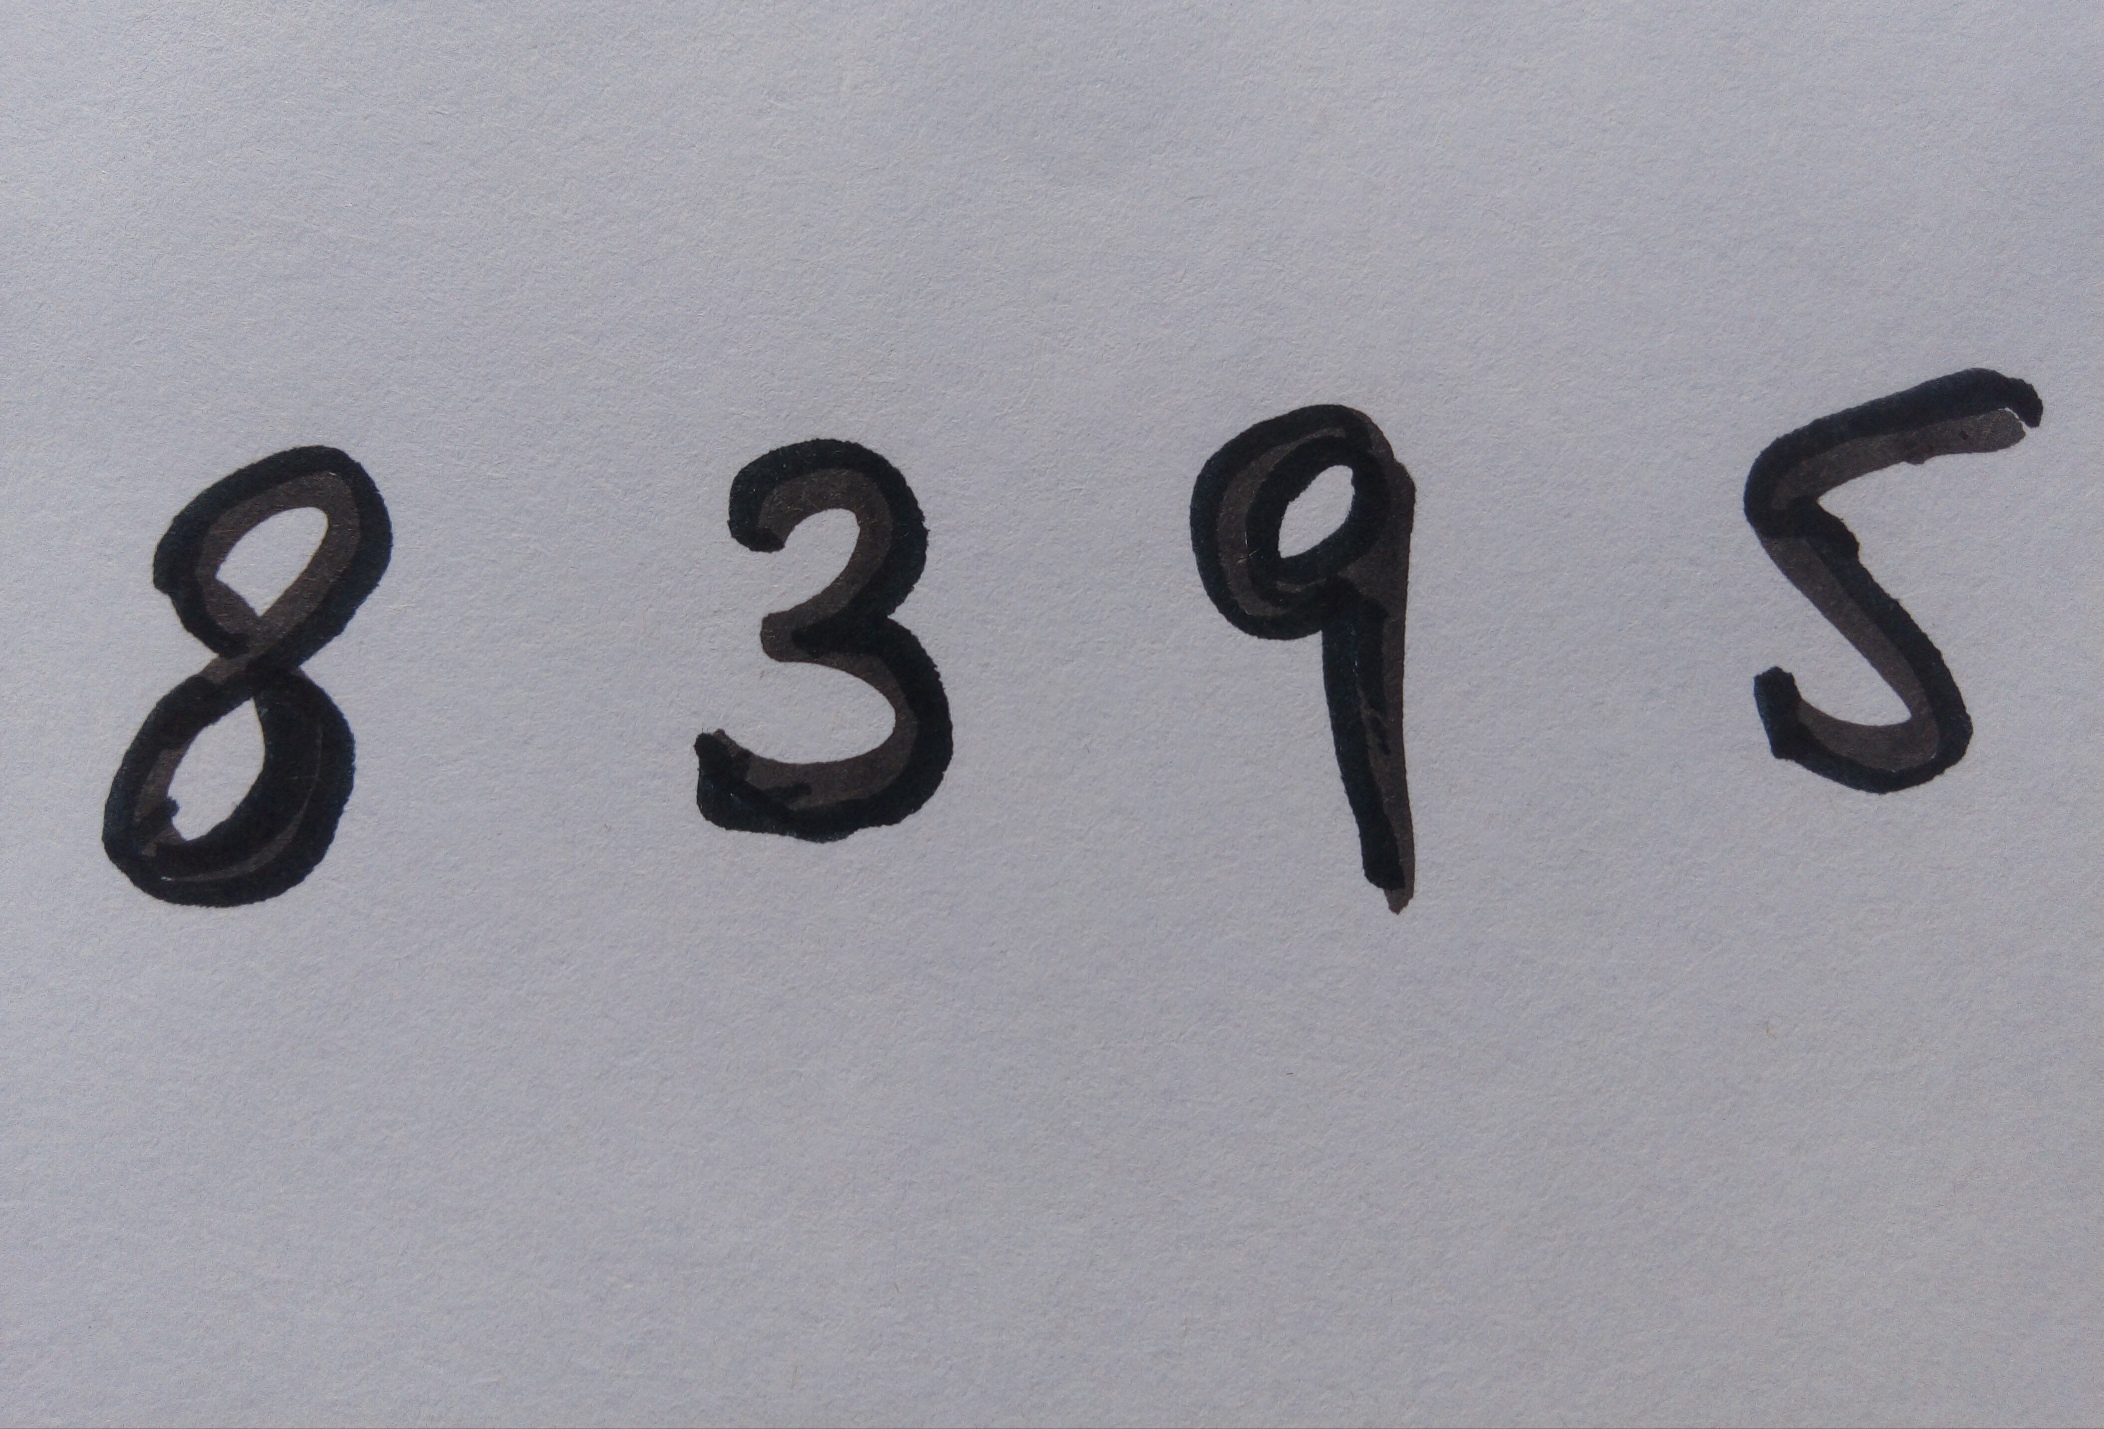 8 3 9 5